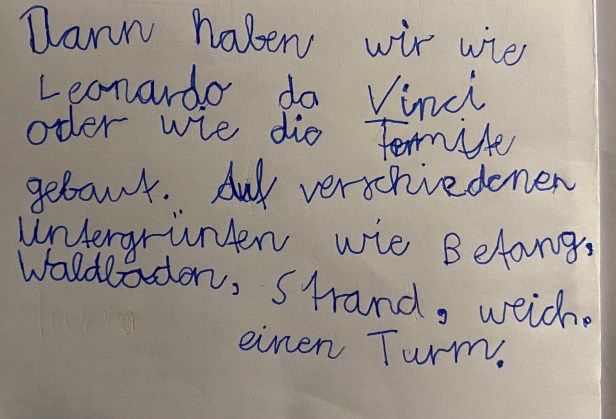 Dann haben wir wie
Leonardo da Vinci
oder wie die Termite
gebaut. Auf verschiedenen
Untergrünten wie Betang,
Waldboden, Strand, weich.
einen Turm.